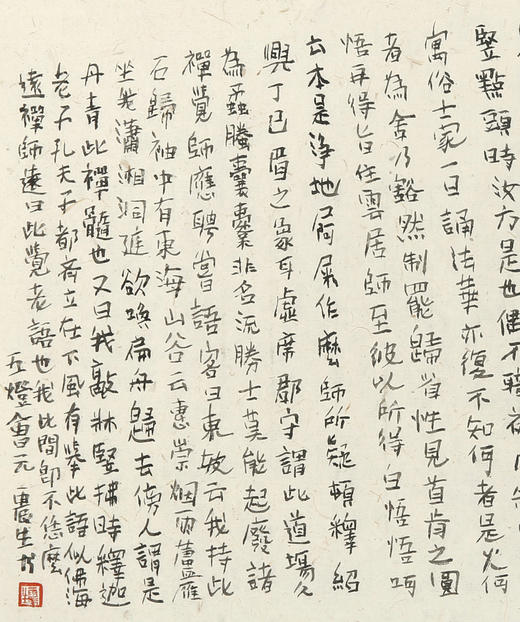 竪點頭時汝方是也偶不職被
寓俗士家一日誦法華亦復不知何者是火何
者為舍乃豁然制罷歸省性見首肯之圓
悟再得旨住雲居師至彼以所得白悟悟呵
云本是淨地屙屎作麼師所疑頓釋紹
興丁巳眉之象耳虛席郡守謂此道場久
為蟊螣囊橐非名流勝士莫能起廢諸
禪覺師應聘嘗語客曰東坡云我持此
石歸袖中有東海山谷云惠崇烟雨蘆雁
坐我瀟湘洞庭欲喚扁舟歸去傍人謂是
丹青此禪髓也又曰我敲牀竪拂時釋迦
老子孔夫子都齊立在下風有舉此語似佛海
遠禪師遠曰此覺老語也我此間即不恁麼
五燈會元 農生